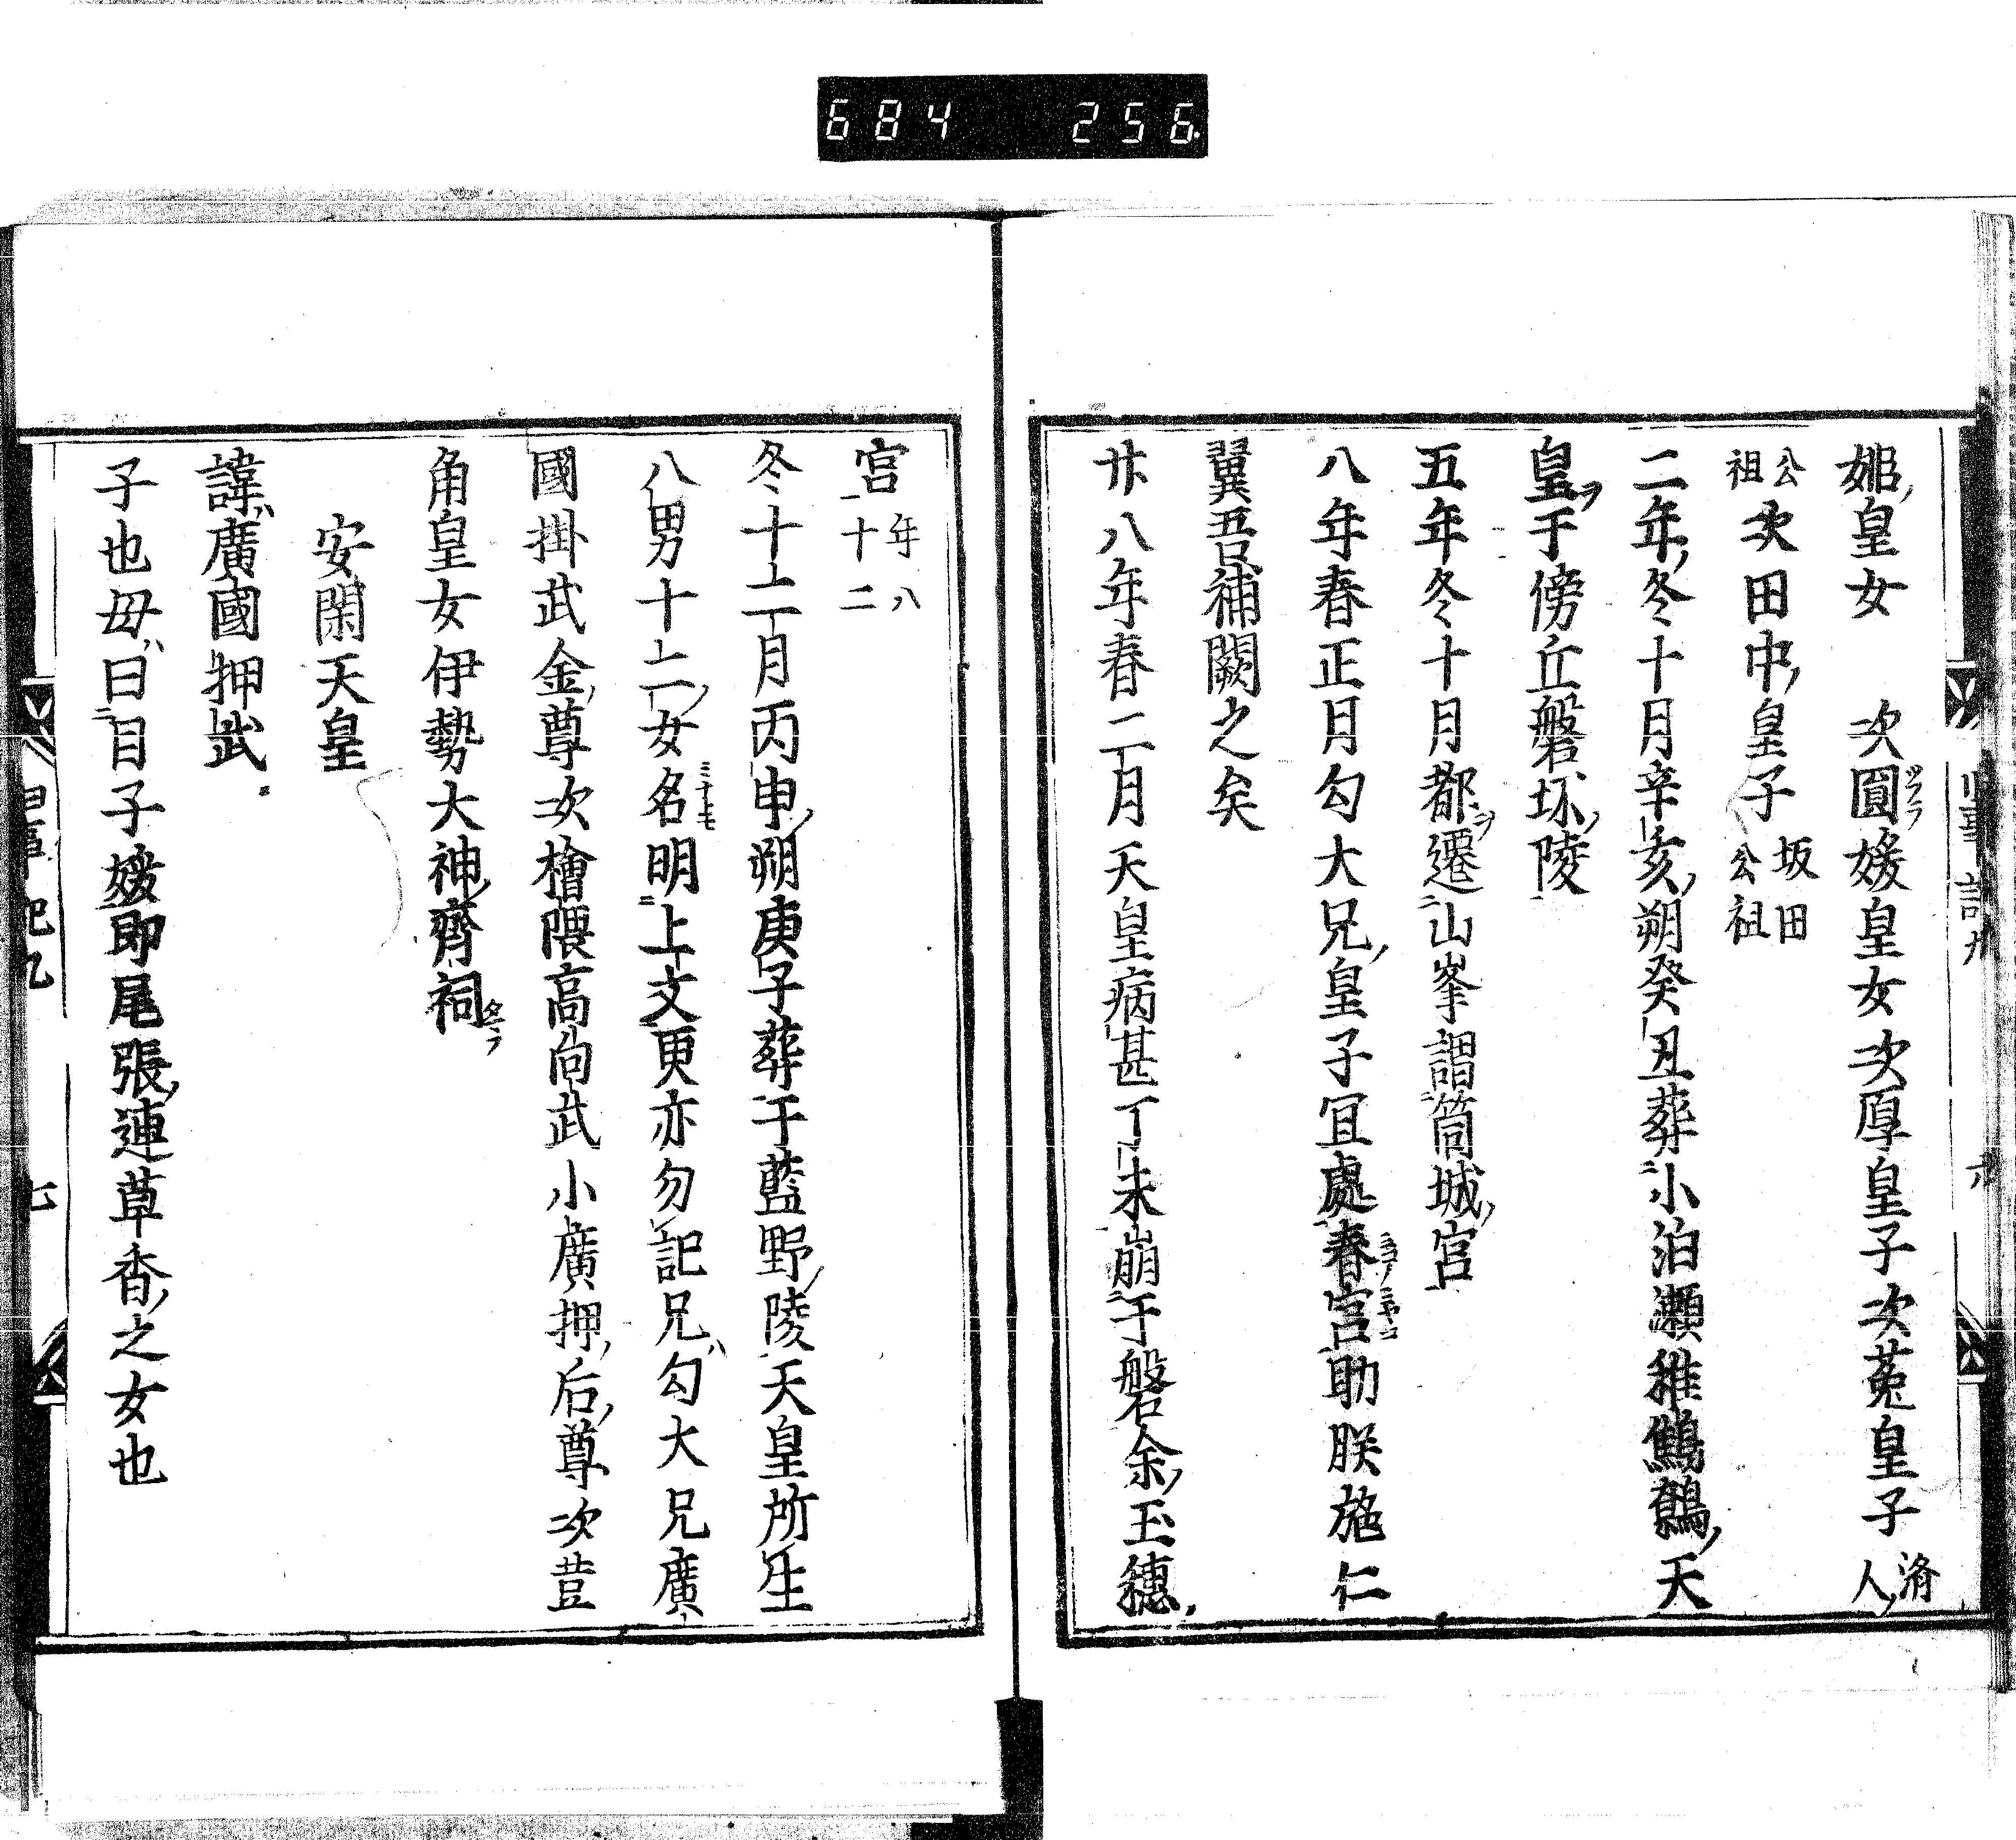 684 256
娓皇女 次圓媛皇女次厚皇子次菟皇子 済人
公祖次田中皇子 坂田公祖
二年冬十月辛亥朔癸丑葬小泊瀬稚鷦鷯天
皇于傍丘磐坏陵
五年冬十月都遷山峯謂筒城宮
八年春正月勾大兄皇子冝處春宮助朕施仁
翼吾補闕之矣
廿八年春二月天皇病甚丁未崩于磐余玉穗
宮 年八十二
冬十二月丙申朔庚子葬于藍野陵天皇所生
八男十二女名明上文更亦勿記兄勾大兄廣
國掛武金尊次檜隈高向武小廣押后尊次荳
角皇女伊勢大神齊祠
安閑天皇
諱廣國押武
子也毋曰目子媛即尾張連草香之女也